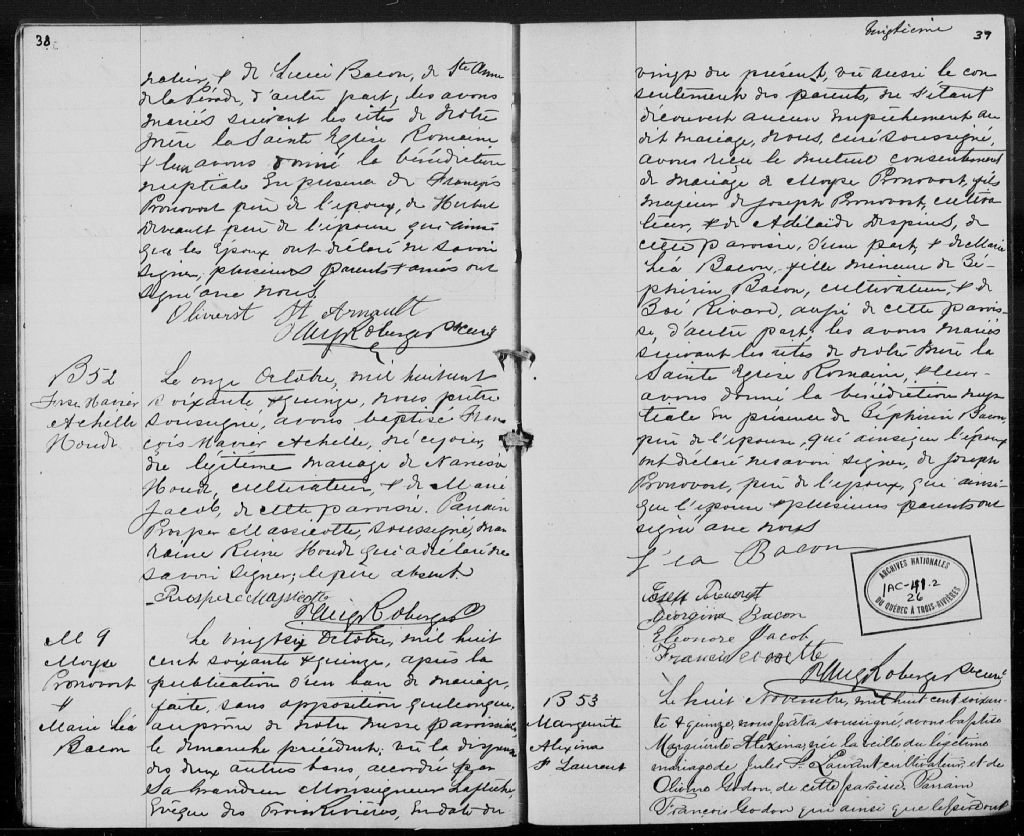 38
natier, & de Luce Bacon, de Ste Anne
de la Pérade, d'autre part, les avons
mariés suivant les rites de Notre
mère la Sainte Eglise Romaine
& leur avons donné la bénédiction
nuptiale En presence de François
Pronovost père de l'epoux, de
père de l'epouse qui ainsi
que les Epoux, ont déclaré ne savoir
signer, plusieurs parents & amis ont
signé avec nous
Olivier St Arnault
Roberge Ptre curé
B 52
Frse Xavier
Achille
Houde
Le onze Octobre, mil huit cent
soixante & quinze, nous prêtre
soussigné, avons baptisé Fran
çois Xavier Achille, né ce jour,
du légitime mariage de Narcisse
Houde, cultivateur, & de Marie
Jacob, de cette paroisse. Parrain
Prosper Massicotte, soussigné, mar
raine Houde qui a déclaré ne
savoir signer; le père absent.
Prospere Massicotte
Roberge
M 9
Moyse
Pronovost
&
Marie Léa
Bacon
Le vingt six Octobre, mil huit
cent soixante & quinze, après la
publication d'un ban de mariage,
faite, sans opposition quelconque,
au prône de notre messe paroissiale,
le dimanche précédent; vu la dispense
des deux autres bans, accordée par
Sa Grandeur Monseigneur Laflèche,
Evêque des Trois Rivières, en date du
Vingtième
39
vingt du présent, vu aussi le con
sentement des parents, ne s'étant
découvert aucun empêchement au
dit mariage, Nous, curé soussigné,
avons reçu le mutuel consentement
de mariage de Moyse Pronovost, fils
majeur de Joseph Pronovost, cultiva
teur, & de Adélaide Despins, de
cette paroisse, d'une part, & de Marie
Léa Bacon, fille mineure de Zé-
phirin Bacon, cultivateur, & de
Zoé Rivard, aussi de cette parois-
se, d'autre part, les avons mariés
suivant les rites de notre mère la
Sainte Eglise Romaine, & leur
avons donné la bénédiction nup
tiale En présence de Zéphirin Bacon,
père de l'epouse, qui ainsi que l'époux
ont déclaré ne savoir signer, de Joseph
Pronovost, père de l'epoux, qui ainsi
que l'epouse & plusieurs parents ont
signé avec nous
Léa Bacon
Georgina Bacon
Eleonore Jacob
Francis
Roberge Ptre curé
ARCHIVES NATIONALES
IAC-191-2
26
DU QUÉBEC À TROIS-RIVIÈRES
B 53
Marguerite
Alexina
St Laurent
Le huit Novembre, mil huit cent soixan-
te & quinze, nous prêtre soussigné, avons baptisé
Marguerite Alexina, née la veille du légitime
mariage de Jules St Laurent cultivateur, et de
Olivine Godon, de cette paroisse. Parrain
François Godon qui ainsi que le père ont